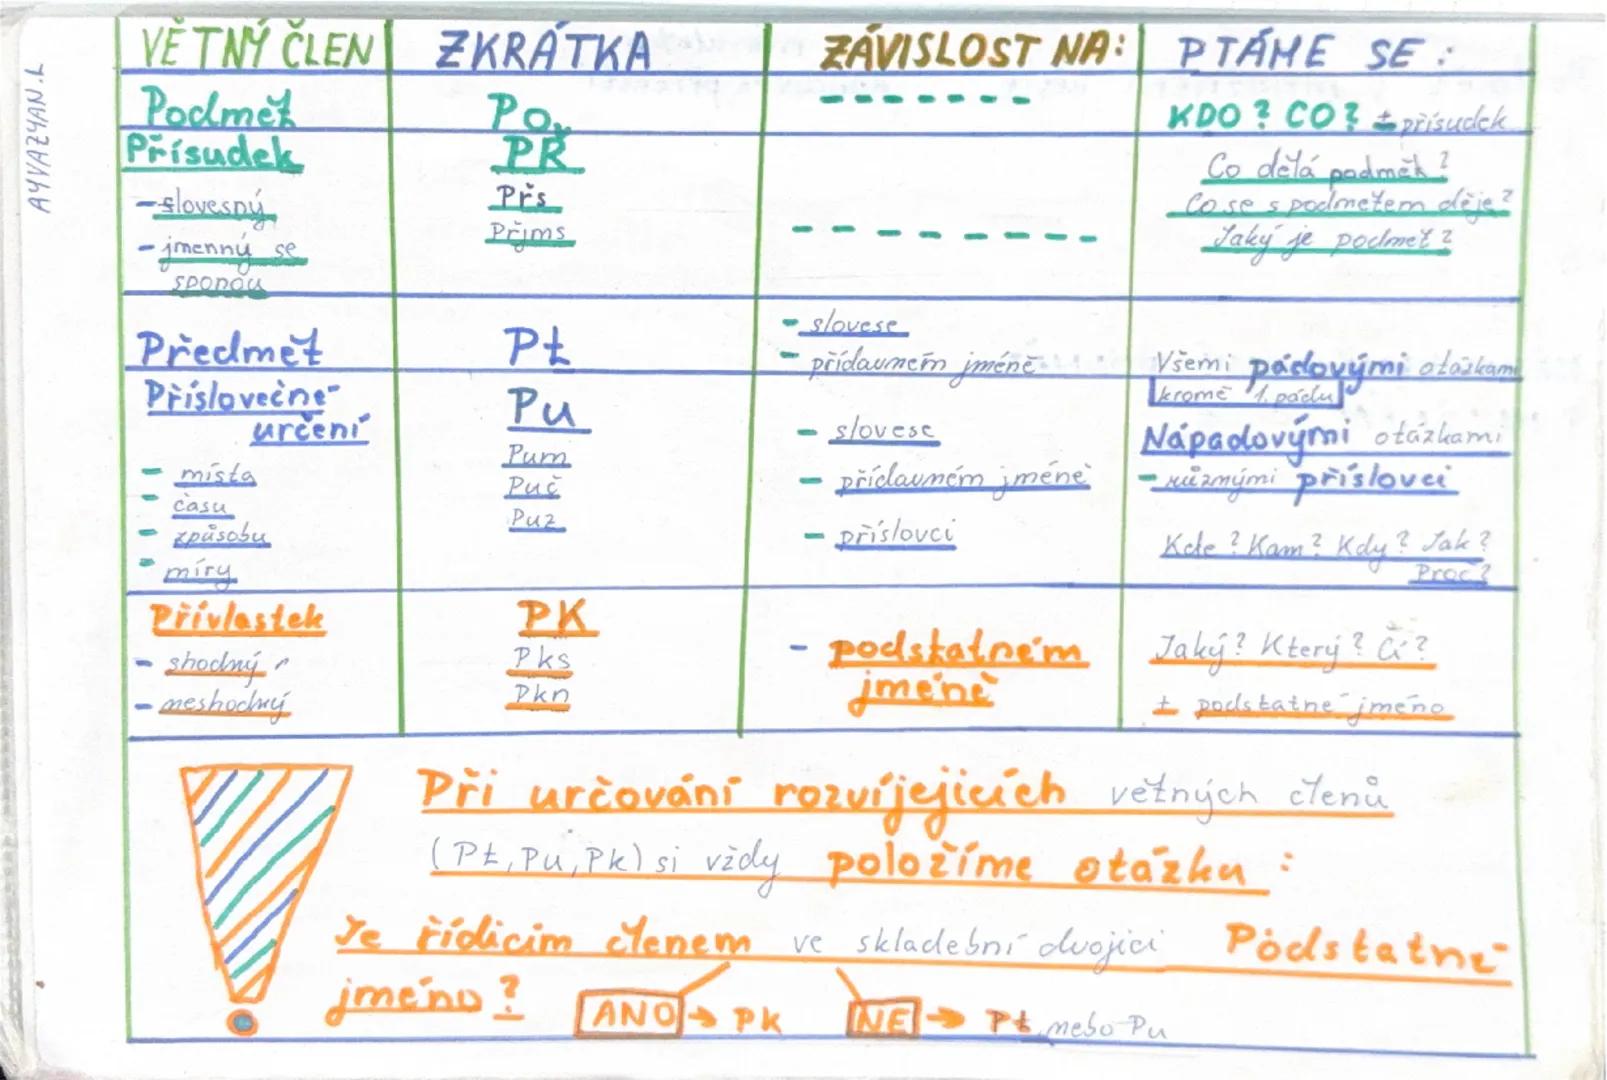 AYVAZYAN.L
VĚTNÝ ČLEN ZKRÁTKA ZÁVISLOST NA: PTÁME SE:
Podmět Po KDO? CO? + přísudek
Přísudek PŘ Co dělá podmět?
- slovesný Přs Co se s podmětem děje?
- jmenný se Přjms Jaký je podmět?
sponou
Předmět Pt - slovese
- přídavném jméně Všemi pádovými otázkami
kromě 1. pádu
Příslovečné Pu
určení - slovese Nápadovými otázkami
- místa Pum - přídavném jméně - různými příslovci
- času Puč
- způsobu Puz - příslovci Kde? Kam? Kdy? Jak?
- míry Proč?
Přívlastek PK
- shodný Pks - podstatném Jaký? Který? Čí?
- neshodný Pkn jméně + podstatné jméno
Při určování rozvíjejicích větných členů
(Pt, Pu, Pk) si vždy položíme otázku:
Je řídicím členem ve skladební dvojici Podstatné
jméno? ANO → PK NE → Pt nebo Pu